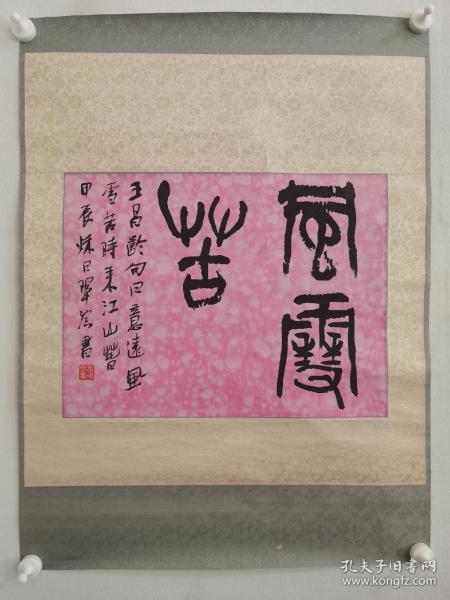 風雪
苦
王昌齡句曰意遠風
雪苦時來江山春
甲辰秋日翠谷書
孔夫子旧书网
www.kongfz.com